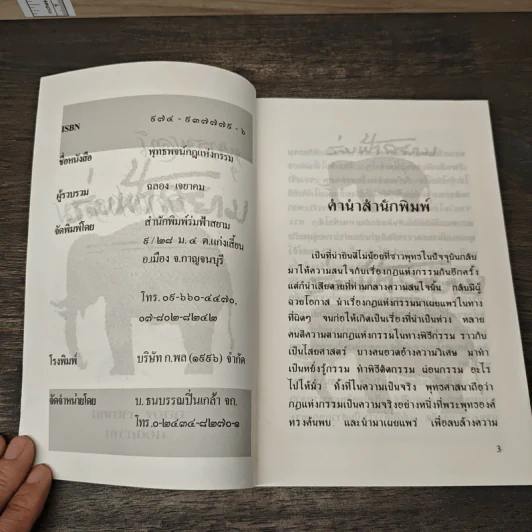 ISBN ๙๗๔-๙๓๗๗๗๙-๖
ชื่อหนังสือ พุทธพจน์กฎแห่งกรรม
ผู้รวบรวม ฉลอง เจยาคม
จัดพิมพ์โดย สำนักพิมพ์ร่มฟ้าสยาม
๙/๒๘ ม.๔ ต.แก่งเสี้ยน
อ.เมือง จ.กาญจนบุรี
โทร. ๐๙-๖๖๐-๔๔๗๐,
๐๗-๘๐๒-๘๒๔๒
โรงพิมพ์ บริษัท ก.พล (๑๙๙๖) จำกัด
จัดจำหน่ายโดย บ. ธนบรรณปิ่นเกล้า จก.
โทร.๐-๒๔๓๔-๘๒๗๐-๑
ร่มฟ้าสยาม
คำนำสำนักพิมพ์
เป็นที่น่ายินดีไม่น้อยที่ชาวพุทธในปัจจุบันกลับ
มาให้ความสนใจกับเรื่องกฎแห่งกรรมกันอีกครั้ง
แต่ก็น่าเสียดายที่ท่ามกลางความสนใจนั้น กลับมีผู้
ฉวยโอกาส นำเรื่องกฎแห่งกรรมมาเผยแพร่ในทาง
ที่ผิดๆ จนก่อให้เกิดเป็นเรื่องที่น่าเป็นห่วง หลาย
คนตีความตามกฎแห่งกรรมในทางพิธีกรรม ราวกับ
เป็นไสยศาสตร์ บางคนอวดอ้างความวิเศษ มาทำ
เป็นหยั่งรู้กรรม ทำพิธีตัดกรรม ผ่อนกรรม อะไร
ไปได้นั่น ทั้งที่ในความเป็นจริง พุทธศาสนาถือว่า
กฎแห่งกรรมเป็นความจริงอย่างหนึ่งที่พระพุทธองค์
ทรงค้นพบ และนำมาเผยแพร่ เพื่อลบล้างความ
3